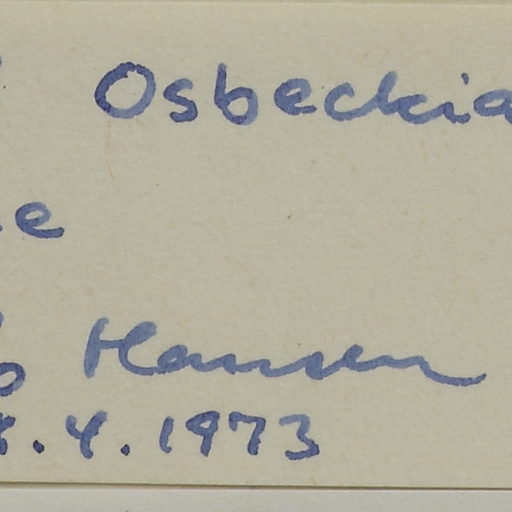 Osbeckia
e
Hansen
8.4.1973